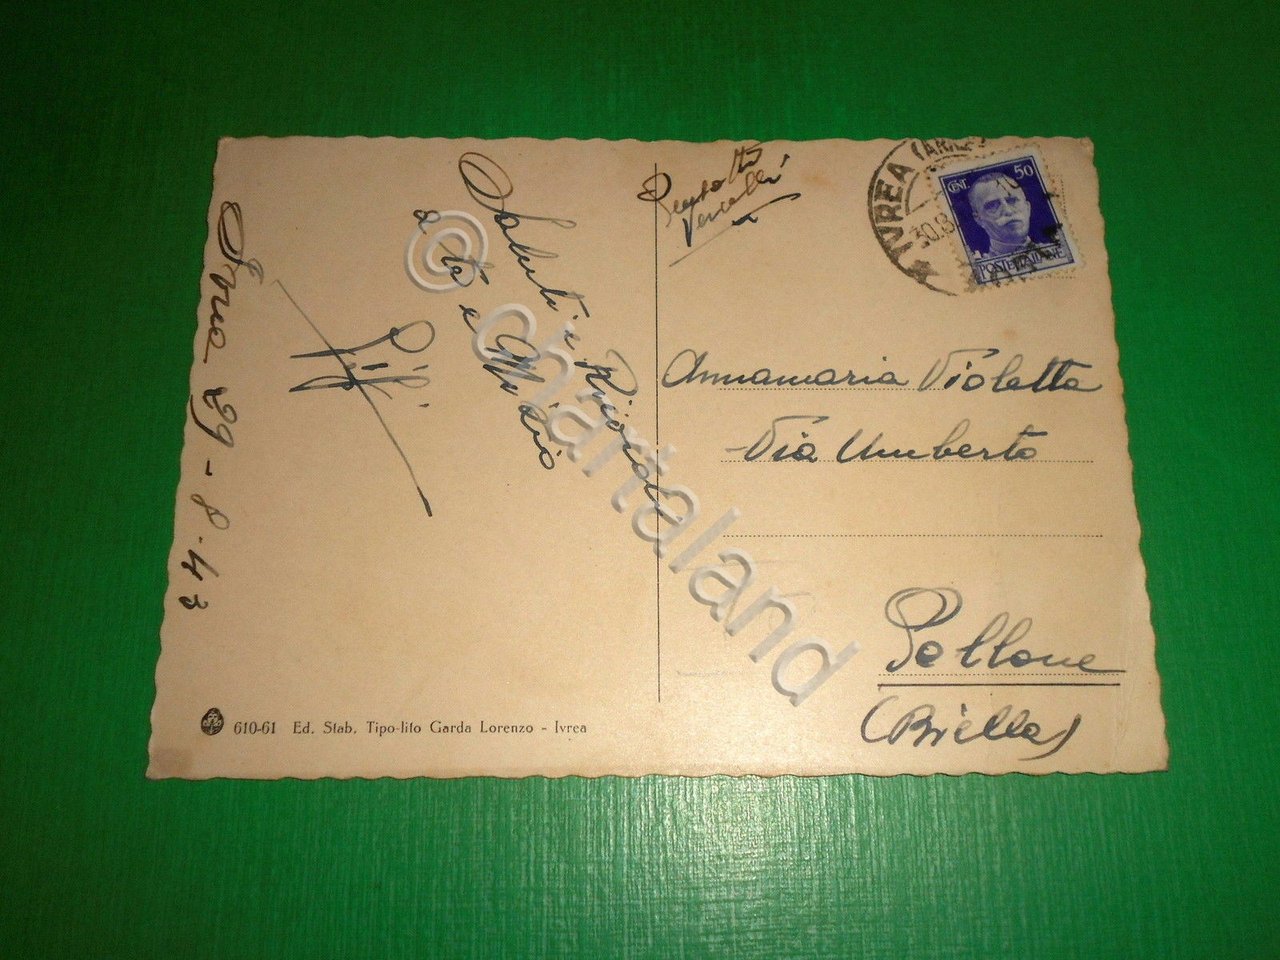 Ivrea 29-8-43
Saluti e Ricordi
a te e Mario
Pifi
610-61 Ed. Stab. Tipo-lito Garda Lorenzo - Ivrea
Vercelli
IVREA (
30.8
CENT. 50
POSTE ITALIANE
Annamaria Violetta
Via Umberto
Pollone
(Biella)
© chartaland